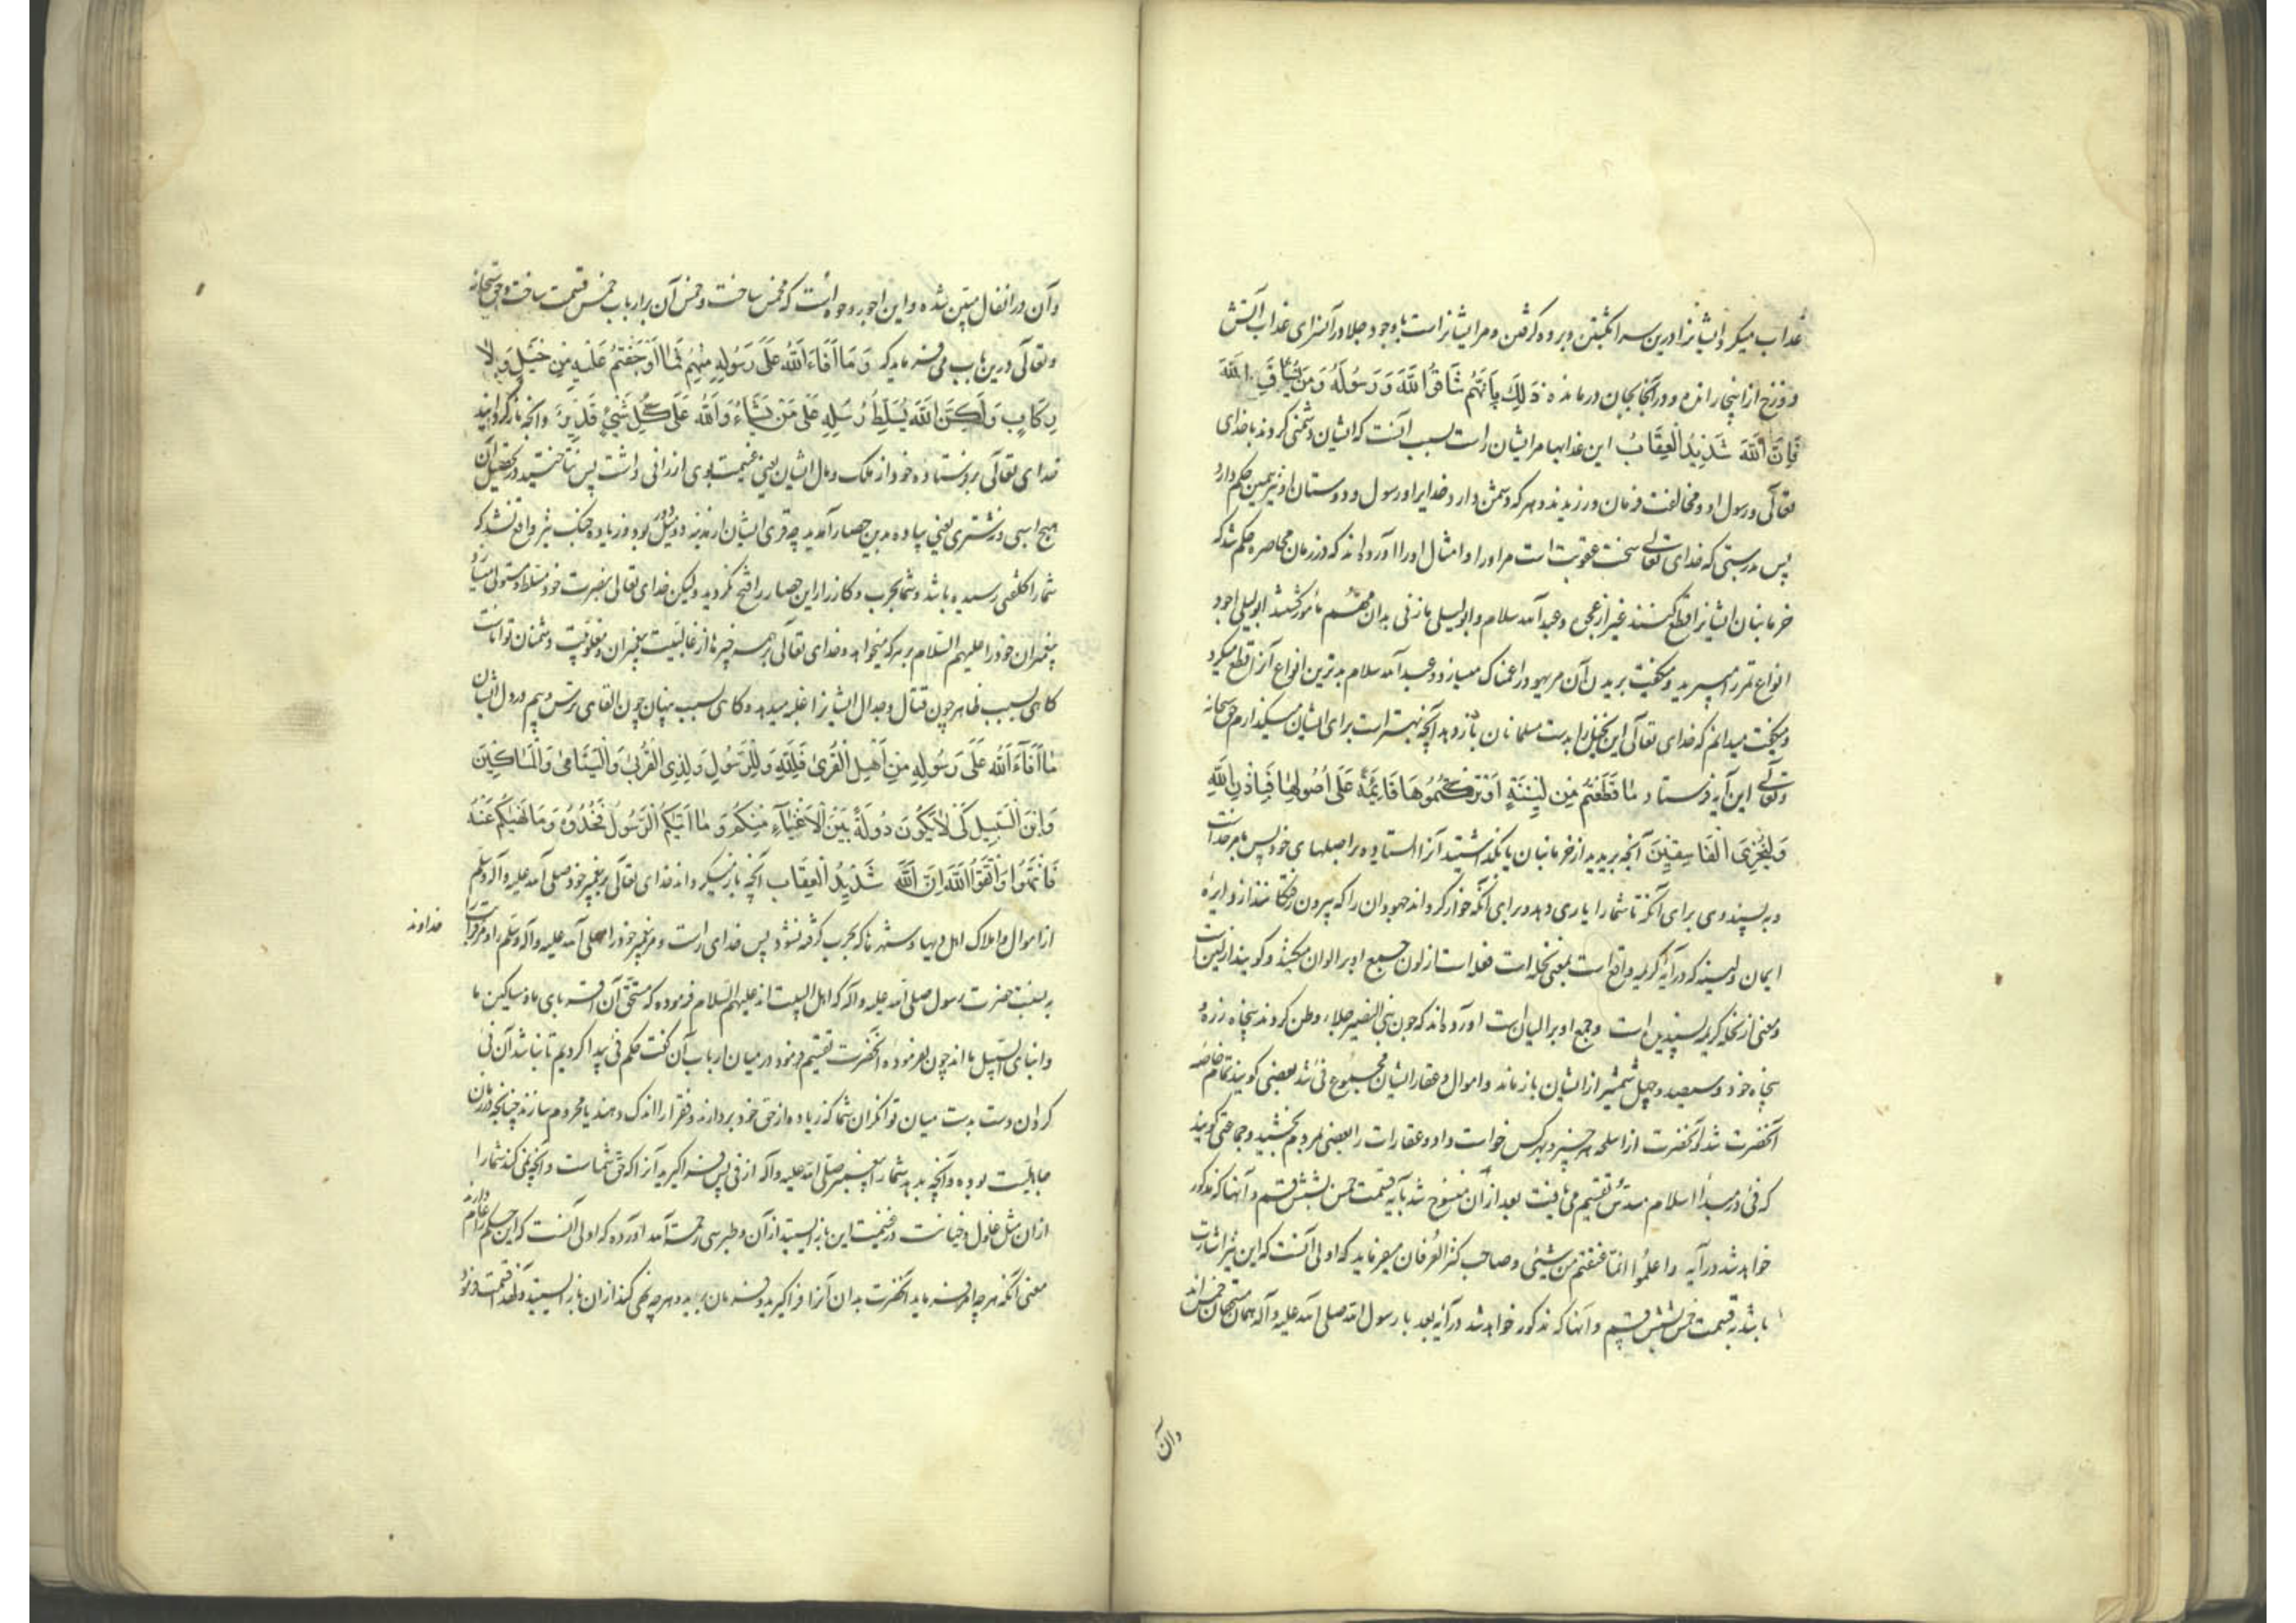 عذاب میکرد ایشانرا درین سرا بکشتن و برده گرفتن و مر ایشانراست با وجود جلا در آنسرای عذاب آتش
دوزخ از اینجا رانده و در آنجا بجان در مانده ذَلِكَ بِاَنَّهُمْ شَاقُّوا اللَّهَ وَ رَسُولَهُ وَ مَنْ يُشَاقِّ اللَّهَ
فَاِنَّ اللَّهَ شَدِيدُ الْعِقَابِ این عذابها مر ایشان راست بسبب آنست که ایشان دشمنی کردند با خدای
تعالی و رسول او و مخالفت فرمان ورزیدند و هر که دشمن دارد خدایرا و رسول و دوستان او نیز همین حکم دارد
پس بدرستی که خدای تعالی سخت عقوبت است مر او را و امثال او را آورده‌اند که در زمان محاصره حکم شد که
خرمابنان ایشانرا قطع کنند غیر از عجوه و عبد الله سلام و ابو لیلی مازنی بدان مهم مأمور گشتند ابو لیلی اجود
انواع تمر را میبرید و میگفت بریدن آن مر یهود را غمناک میسازد و عبد الله سلام بدترین انواع آنرا قطع میکرد
و میگفت میدانم که خدای تعالی این نخیل را بدست مسلمانان باز دهد آنچه بهتر است برای ایشان میگذارم حق سبحانه
و تعالی این آیه فرستاد مَا قَطَعْتُمْ مِنْ لِينَةٍ اَوْ تَرَكْتُمُوهَا قَائِمَةً عَلَى اُصُولِهَا فَبِاِذْنِ اللَّهِ
وَ لِيُخْزِيَ الْفَاسِقِينَ آنچه بریدید از خرمابنان یا بگذاشتید آنرا ایستاده بر اصلهای خود پس بامر خداست
و به پسندوی برای آنکه تا شما را یاری دهد و برای آنکه خوار گرداند جهودان را که بیرون رفتگانند از دایرهٔ
ایمان و لینه که در آیه کریمه واقع است بمعنی نخله است فعله است از لون جمیع او بر الوان میکنند و گویند از لین است
و معنی از نخله کریمه پسندیده است و جمع او بر الیان است آورده‌اند که چون بنی النضیر جلاء وطن کردند پنجاه زره
پنجاه خود و سیصد و چهل شمشیر از ایشان باز ماند و اموال و عقار ایشان مجموع فئ شد بعضی گویند تمام خاصه
آنحضرت شد و آنحضرت از اسلحه هر چیز و بهر کس خواست داد و عقارات را بعضی بمردم بخشید و جماعتی گویند
که فئ در مبدأ اسلام مسدس تقسیم می‌یافت بعد از آن منسوخ شد بآیه قسمت خمس بشش قسم و آنها که مذکور
خواهد شد در آیه واعلموا انما غنمتم من شیئی و صاحب کنز العرفان میفرماید که اولی آنست که این نیز اشارت
باشد بقسمت خمس بشش قسم و آنها که مذکور خواهد شد در آیه بعد با رسول الله صلی الله علیه و آله همان مستحقان خمس‌اند
وآن
وآن در انفال مبین شده و این اجود وجوه است که مخمس ساخت و خمس آن بر ارباب خمس قسمت ساخت و حق سبحانه
و تعالی درین باب می‌فرماید که وَ مَا اَفَاءَ اللَّهُ عَلَى رَسُولِهِ مِنْهُمْ فَمَا اَوْجَفْتُمْ عَلَيْهِ مِنْ خَيْلٍ وَ لَا
رِكَابٍ وَ لَكِنَّ اللَّهَ يُسَلِّطُ رُسُلَهُ عَلَى مَنْ يَشَاءُ وَ اللَّهُ عَلَى كُلِّ شَيْءٍ قَدِيرٌ و آنچه باز گردانید
خدای تعالی بر فرستاده خود از ملک و مال ایشان یعنی غنیمت بوی ارزانی داشت پس نتاختید در تحصیل آن
هیچ اسبی و نه شتری یعنی پیاده بدین حصار آمدید چه قری ایشان از مدینه دو میل دور بود و زیاده جنک نیز واقع نشد که
شما را کلفتی رسیده باشد و شما بحرب و کارزار این حصار را فتح نکردید ولیکن خدای تعالی بنصرت خود مسلط و مستولی میسازد
پیغمبران خود را علیهم السلام بر هر که میخواهد و خدای تعالی بر همه چیزها از غالبیت پیغمبران و مغلوبیت دشمنان تواناست
گاهی بسبب ظاهر چون قتال و جدال ایشانرا غلبه میدهد و گاهی بسبب پنهان چون القای ترس و بیم در دل ایشان
مَا اَفَاءَ اللَّهُ عَلَى رَسُولِهِ مِنْ اَهْلِ الْقُرَى فَلِلَّهِ وَ لِلرَّسُولِ وَ لِذِي الْقُرْبَى وَ الْيَتَامَى وَ الْمَسَاكِينَ
وَ ابْنِ السَّبِيلِ كَيْ لَا يَكُونَ دُولَةً بَيْنَ الْاَغْنِيَاءِ مِنْكُمْ وَ مَا آتَيكُمُ الرَّسُولُ فَخُذُوهُ وَ مَا نَهَيكُمْ عَنْهُ
فَانْتَهُوا وَ اتَّقُوا اللَّهَ اِنَّ اللَّهَ شَدِيدُ الْعِقَابِ آنچه باز میگرداند خدای تعالی بر پیغمبر خود صلی الله علیه و آله وسلم
از اموال و املاک اهل دیها و شهرها که بحرب گرفته نشود پس خدای راست و مر پیغمبر خود را صلی الله علیه و آله وسلم و مر خداوند قرابت
به بنسبت حضرت رسول صلی الله علیه و آله که اهل البیت‌اند علیهم السلام فرموده که مستحق آن اقربای ما و مساکین ما
و ابنای السبیل مااند چون بفرموده آنحضرت تقسیم فرمود در میان ارباب آن گفت حکم فئ پیدا کردیم تا نباشد آن فئ
گردان دست بدست میان توانگران شما که زیاده از حق خود بردارند و فقرا را اندک دهند یا محروم سازند چنانچه در زمان
جاهلیت بوده و آنچه بدهد شما را پیغمبر صلی الله علیه و آله از فئ پس فرا گیرید آنرا که حق شماست و آنچه نهی کند شما را
از آن مثل غلول و خیانت در غنیمت این باز ایستید از آن و طبرسی رحمة الله آورده که اولی آنست که این حکم را عام دارند
معنی آنکه هر چه امر فرماید آنحضرت بدان آنرا فرا گیرید و فرمان برید و هر چه نهی کند از آن باز ایستید و لهذا قسمت فرمود